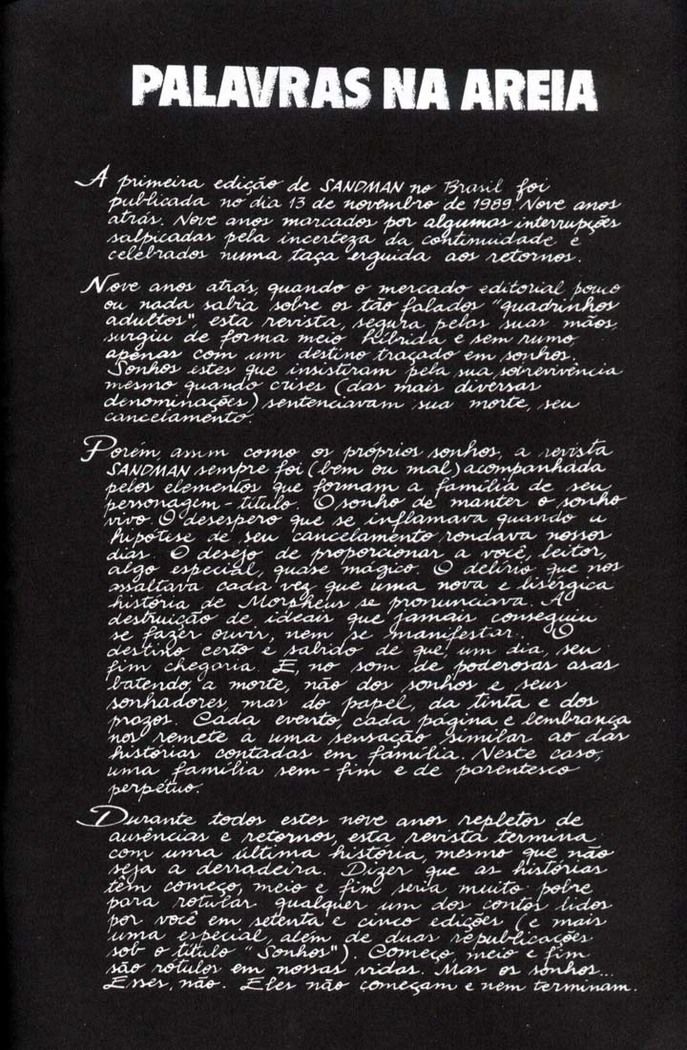 PALAVRAS NA AREIA
A primeira edição de SANDMAN no Brasil foi
publicada no dia 13 de novembro de 1989. Nove anos
atrás. Nove anos marcados por algumas interrupções
salpicadas pela incerteza da continuidade e
celebrados numa taça erguida aos retornos.
Nove anos atrás, quando o mercado editorial pouco
ou nada sabia sobre os tão falados "quadrinhos
adultos", esta revista, segura pelas suas mãos,
surgiu de forma meio híbrida e sem rumo,
apenas com um destino traçado em sonhos.
Sonhos estes que insistiram pela sua sobrevivência
mesmo quando crises (das mais diversas
denominações) sentenciavam sua morte, seu
cancelamento.
Porém, assim como os próprios sonhos, a revista
SANDMAN sempre foi (bem ou mal) acompanhada
pelos elementos que formam a família de seu
personagem-título. O sonho de manter o sonho
vivo. O desespero que se inflamava quando a
hipótese de seu cancelamento rondava nossos
dias. O desejo de proporcionar a você, leitor,
algo especial, quase mágico. O delírio que nos
assaltava cada vez que uma nova e lisérgica
história de Morpheus se pronunciava. A
destruição de ideais que jamais conseguiu
se fazer ouvir, nem se manifestar. O
destino certo e sabido de que, um dia, seu
fim chegaria. E, no som de poderosas asas
batendo, a morte, não dos sonhos e seus
sonhadores, mas do papel, da tinta e dos
prazos. Cada evento, cada página e lembrança
nos remete a uma sensação similar ao das
histórias contadas em família. Neste caso,
uma família sem-fim e de parentesco
perpétuo.
Durante todos estes nove anos repletos de
ausências e retornos, esta revista termina
com uma última história, mesmo que não
seja a derradeira. Dizer que as histórias
têm começo, meio e fim seria muito pobre
para rotular qualquer um dos contos lidos
por você em setenta e cinco edições (e mais
uma especial, além de duas republicações
sob o título "Sonhos"). Começo, meio e fim
são rótulos em nossas vidas. Mas os sonhos...
Esses, não. Eles não começam e nem terminam.